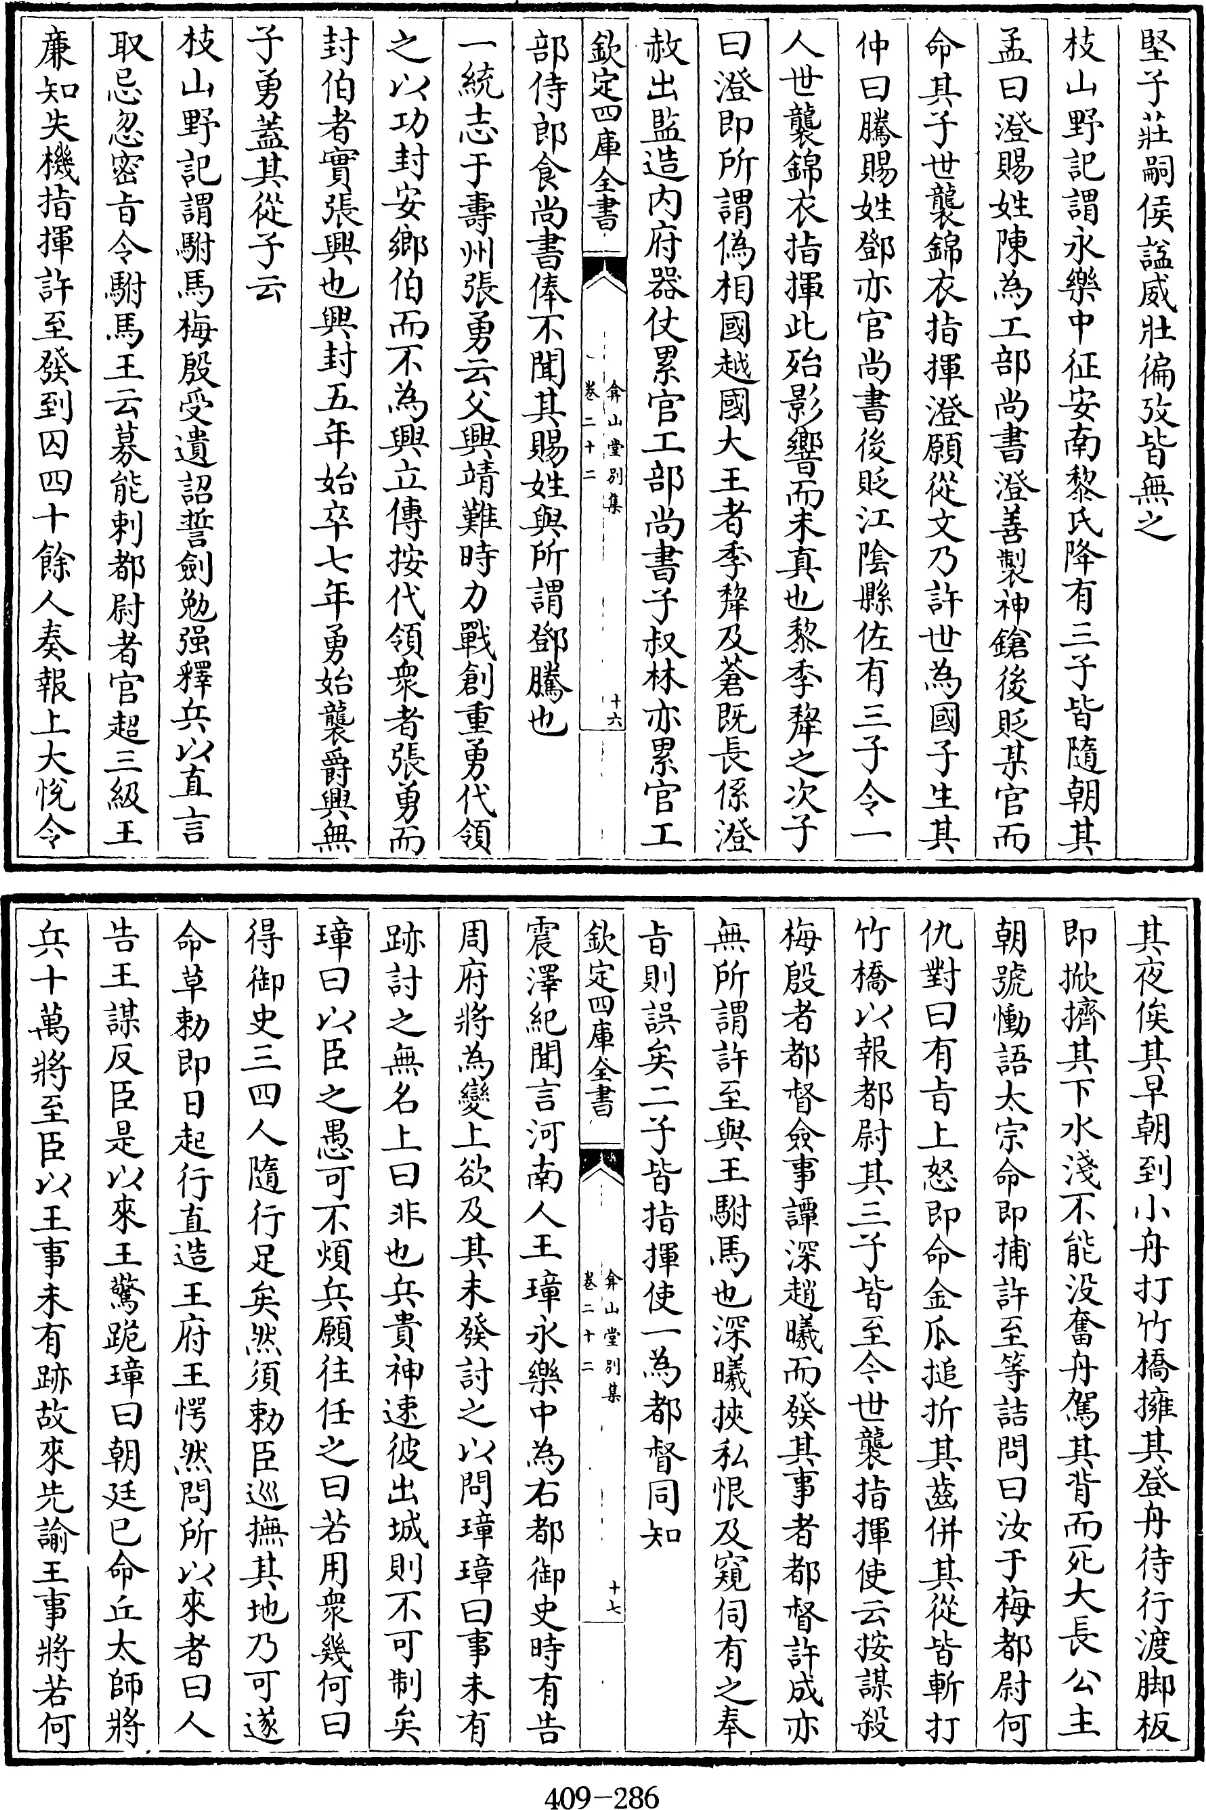 堅子莊嗣侯諡威壯徧攷皆無之
枝山野記謂永樂中征安南黎氏降有三子皆隨朝其
孟曰澄賜姓陳為工部尚書澄善製神鎗後貶某官而
命其子世襲錦衣指揮澄願從文乃許世為國子生其
仲曰騰賜姓鄧亦官尚書後貶江陰縣佐有三子令一
人世襲錦衣指揮此殆影響而未真也黎季犛之次子
曰澄即所謂偽相國越國大王者季犛及蒼既長係澄
赦出監造內府器仗累官工部尚書子叔林亦累官工
欽定四庫全書
弇山堂別集
卷二十二
十六
部侍郎食尚書俸不聞其賜姓與所謂鄧騰也
一統志于壽州張勇云父興靖難時力戰創重勇代領
之以功封安鄉伯而不為興立傳按代領衆者張勇而
封伯者實張興也興封五年始卒七年勇始襲爵興無
子勇蓋其從子云
枝山野記謂駙馬梅殷受遺詔誓劍勉强釋兵以直言
取忌忽密旨令駙馬王云募能刺都尉者官超三級王
廉知失機指揮許至發到囚四十餘人奏報上大悅令
其夜俟其早朝到小舟打竹橋擁其登舟待行渡脚板
即掀擠其下水淺不能没奮舟駕其背而死大長公主
朝號慟語太宗命即捕許至等詰問曰汝于梅都尉何
仇對曰有旨上怒即命金瓜搥折其齒併其從皆斬打
竹橋以報都尉其三子皆至今世襲指揮使云按謀殺
梅殷者都督僉事譚深趙曦而發其事者都督許成亦
無所謂許至與王駙馬也深曦挾私恨及窺伺有之奉
旨則誤矣二子皆指揮使一為都督同知
欽定四庫全書
弇山堂別集
卷二十二
十七
震澤紀聞言河南人王璋永樂中為右都御史時有告
周府將為變上欲及其未發討之以問璋璋曰事未有
跡討之無名上曰非也兵貴神速彼出城則不可制矣
璋曰以臣之愚可不煩兵願往任之曰若用衆幾何曰
得御史三四人隨行足矣然須勅臣巡撫其地乃可遂
命草勅即日起行直造王府王愕然問所以來者曰人
告王謀反臣是以來王驚跪璋曰朝廷已命丘太師將
兵十萬將至臣以王事未有跡故來先諭王事將若何
409-286